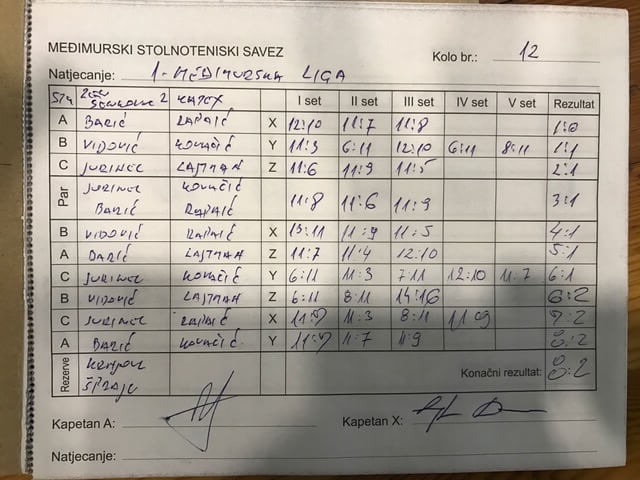 MEĐIMURSKI STOLNOTENISKI SAVEZ
Kolo br.: 12
Natjecanje: 1. MEĐIMURSKA LIGA
2 I set II set III set IV set V set Rezultat
A BARIĆ RAPAIĆ X 12:10 11:7 11:8 1:0
B VIDOVIĆ KOVAČIĆ Y 11:3 6:11 12:10 6:11 8:11 1:1
C JURINEC LAJTMAN Z 11:6 11:9 11:5 2:1
Par JURINEC KOVAČIĆ
BARIĆ RAPAIĆ 11:8 11:6 11:9 3:1
B VIDOVIĆ RAPAIĆ X 13:11 11:9 11:5 4:1
A BARIĆ LAJTMAN Z 11:7 11:4 12:10 5:1
C JURINEC KOVAČIĆ Y 6:11 11:3 7:11 12:10 11:7 6:1
B VIDOVIĆ LAJTMAN Z 6:11 8:11 14:16 6:2
C JURINEC RAPAIĆ X 11:3 8:11 11:9 7:2
A BARIĆ KOVAČIĆ Y 11:7 11:9 8:2
Rezerve
Konačni rezultat: 8:2
Kapetan A:
Kapetan X:
Natjecanje: